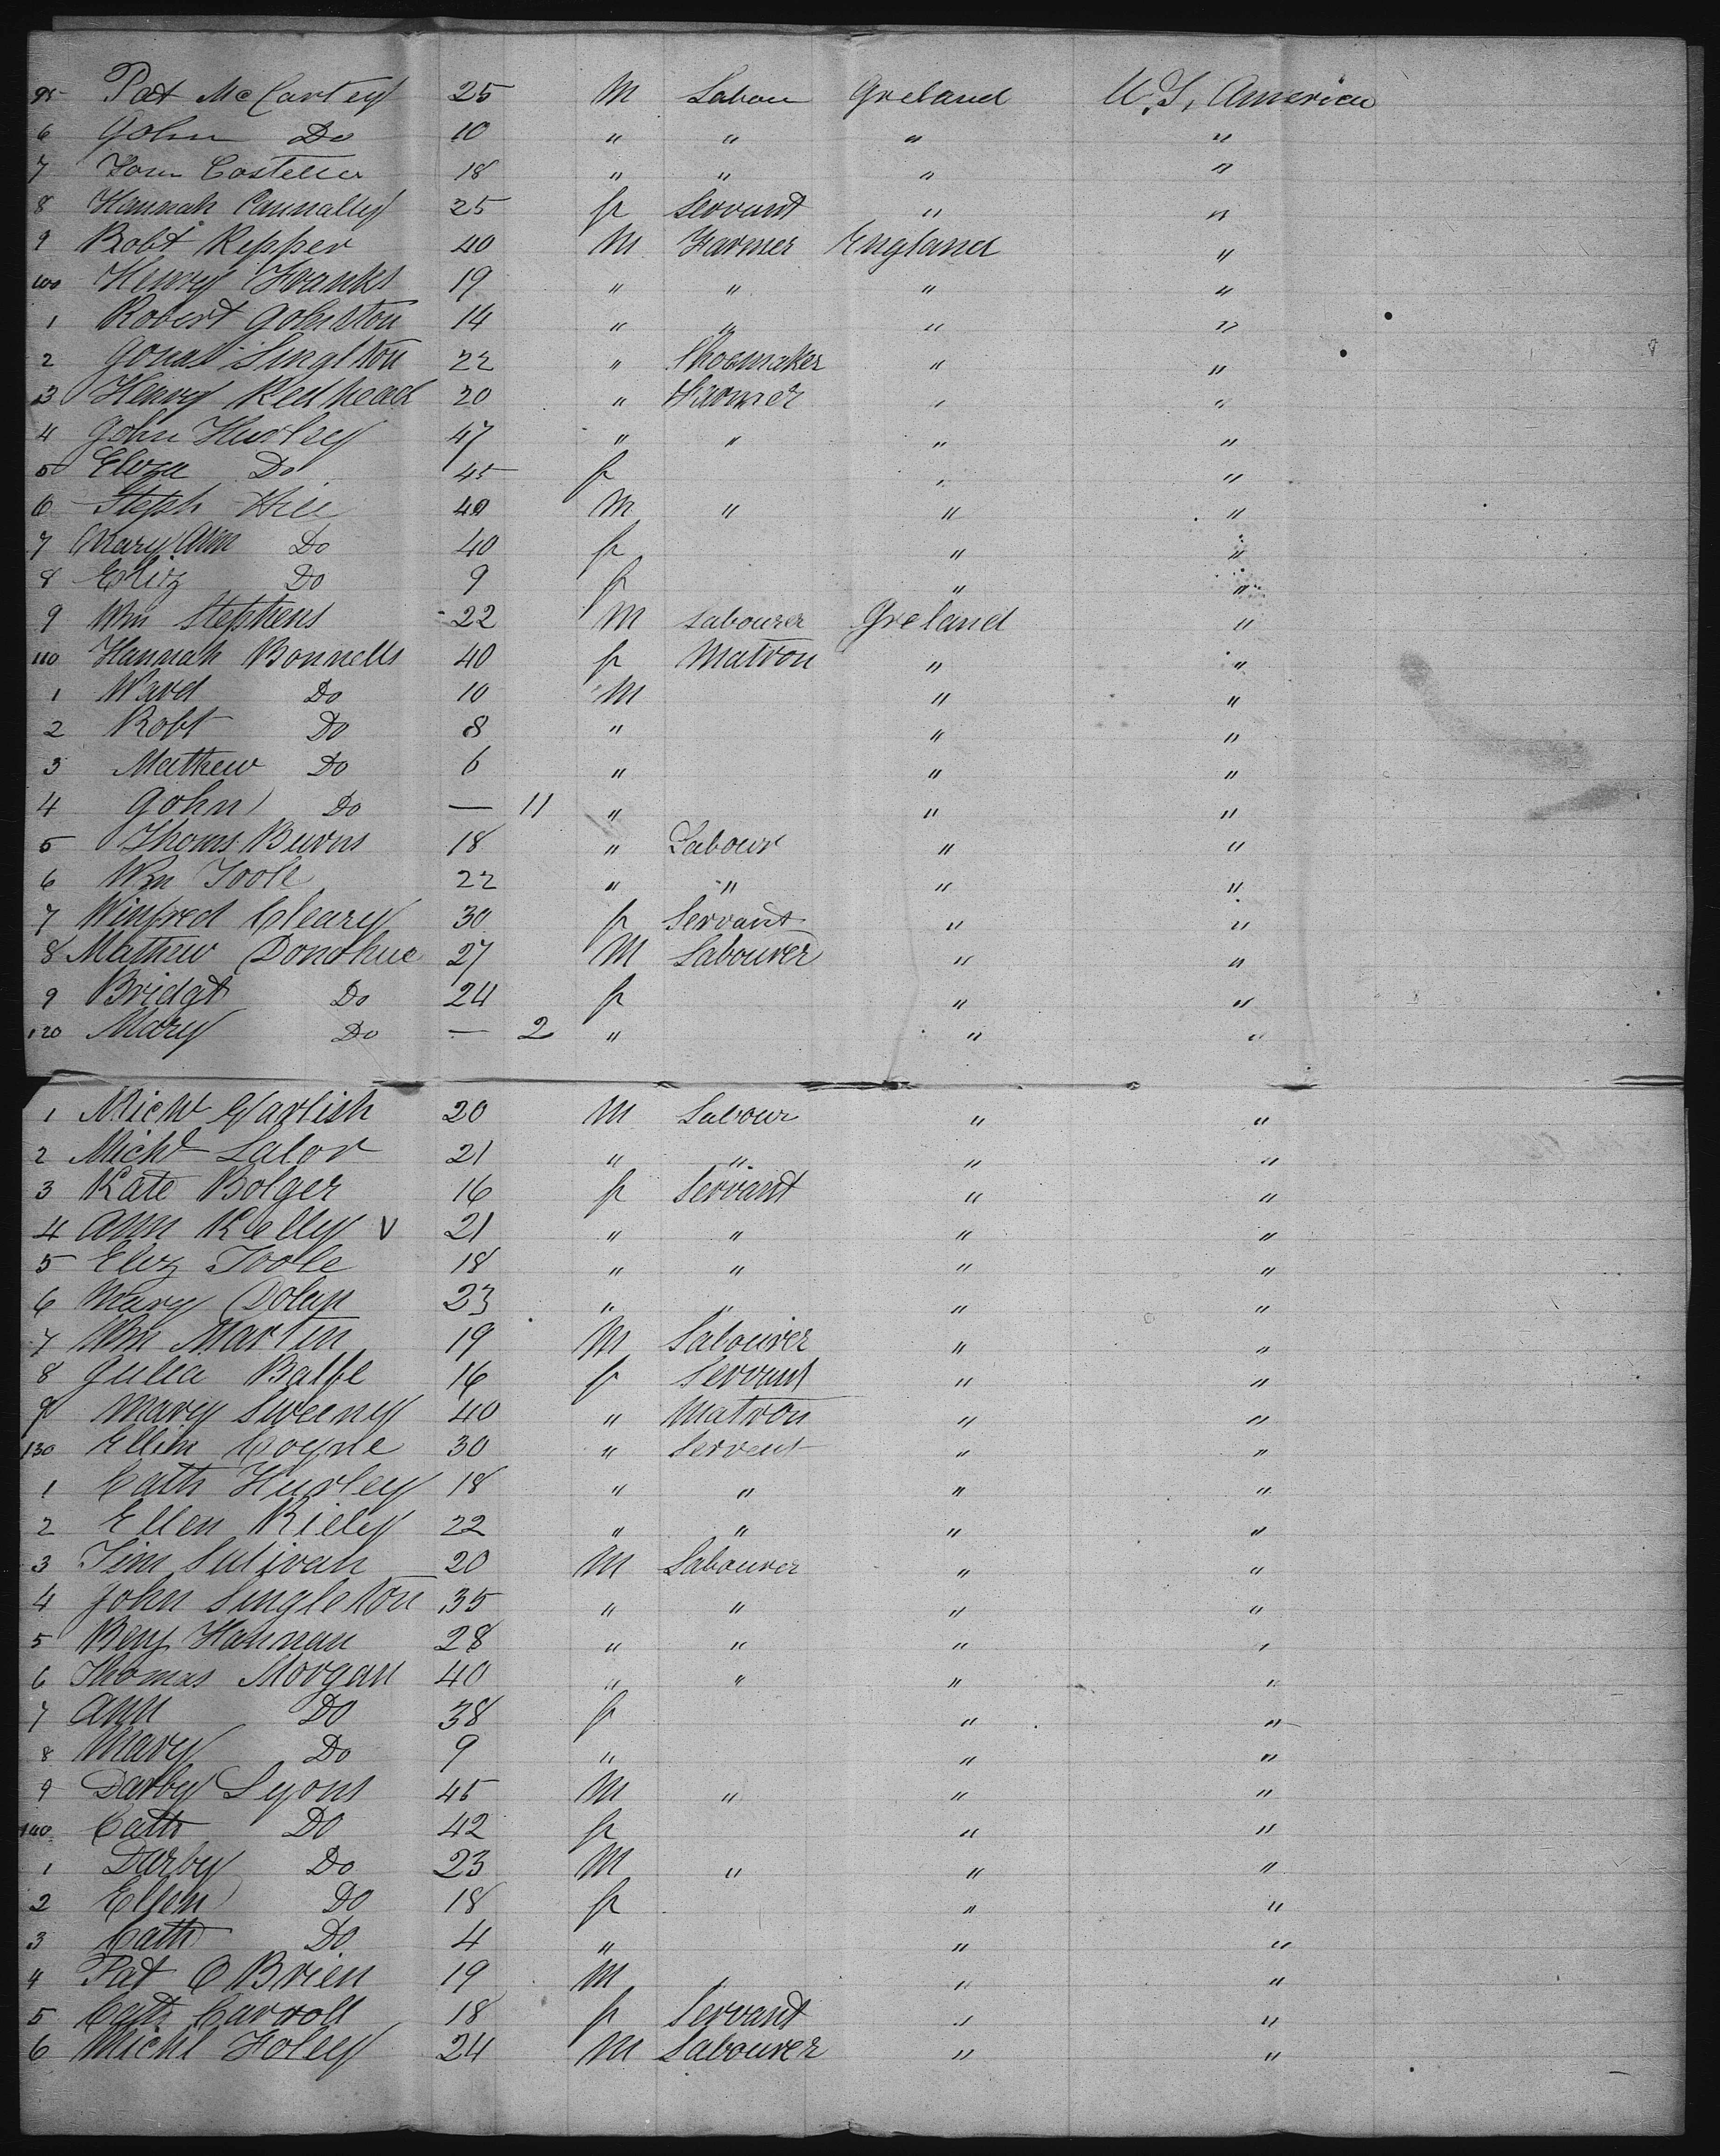 95 Pat McCartey 25 M Labou Ireland U.S. America
6 John Do 10 " " " "
7 Tom Costello 18 " " " "
8 Hannah Cannally 25 f Servant " "
9 Robt Repper 40 M Farmer England "
100 Henry Franks 19 " " " "
1 Robert Johnston 14 " " " "
2 Jonas Singlton 22 " Shoemaker " "
3 Henry Redhead 20 " Farmer " "
4 John Hurley 47 " " " "
5 Eliza Do 45 f " "
6 Steph Hill 40 M " " "
7 Mary Ann Do 40 f " "
8 Eliz Do 9 f " "
9 Wm Stephens 22 M Labourer Ireland "
110 Hannah Bonnells 40 f Matron " "
1 Ward Do 10 M " "
2 Robt Do 8 " " "
3 Mathew Do 6 " " "
4 John Do — 11 " " "
5 Thoms Burns 18 " Labour " "
6 Wm Toole 22 " " " "
7 Winfred Cleary 30 f Servant " "
8 Mathew Donohue 27 M Labourer " "
9 Bridgt Do 24 f " "
120 Mary Do — 2 " " "
1 Michl 20 M Labour " "
2 Michl Lalor 21 " " " "
3 Kate Bolger 16 f Servant " "
4 Ann Kelly V 21 " " " "
5 Eliz Toole 18 " " " "
6 Mary Dolan 23 " " " "
7 Wm Martin 19 M Labourer " "
8 Julia Balfe 16 f Servant " "
9 Mary Sweeny 40 " Matron " "
130 Ellen Coyne 30 " Servent " "
1 Cath Hurley 18 " " " "
2 Ellen Riely 22 " " " "
3 Tim Sulivan 20 M Labourer " "
4 John Singleton 35 " " " "
5 Benj Hannan 28 " " " "
6 Thomas Morgan 40 " " " "
7 Ann Do 38 f " "
8 Mary Do 9 " " "
9 Darby Lyons 45 M " " "
140 Cath Do 42 f " "
1 Darby Do 23 M " " "
2 Ellen Do 18 f " "
3 Cath Do 4 " " "
4 Pat O Brien 19 M " " "
5 Cath Carroll 18 f Servant " "
6 Michl Foley 24 M Labourer " "